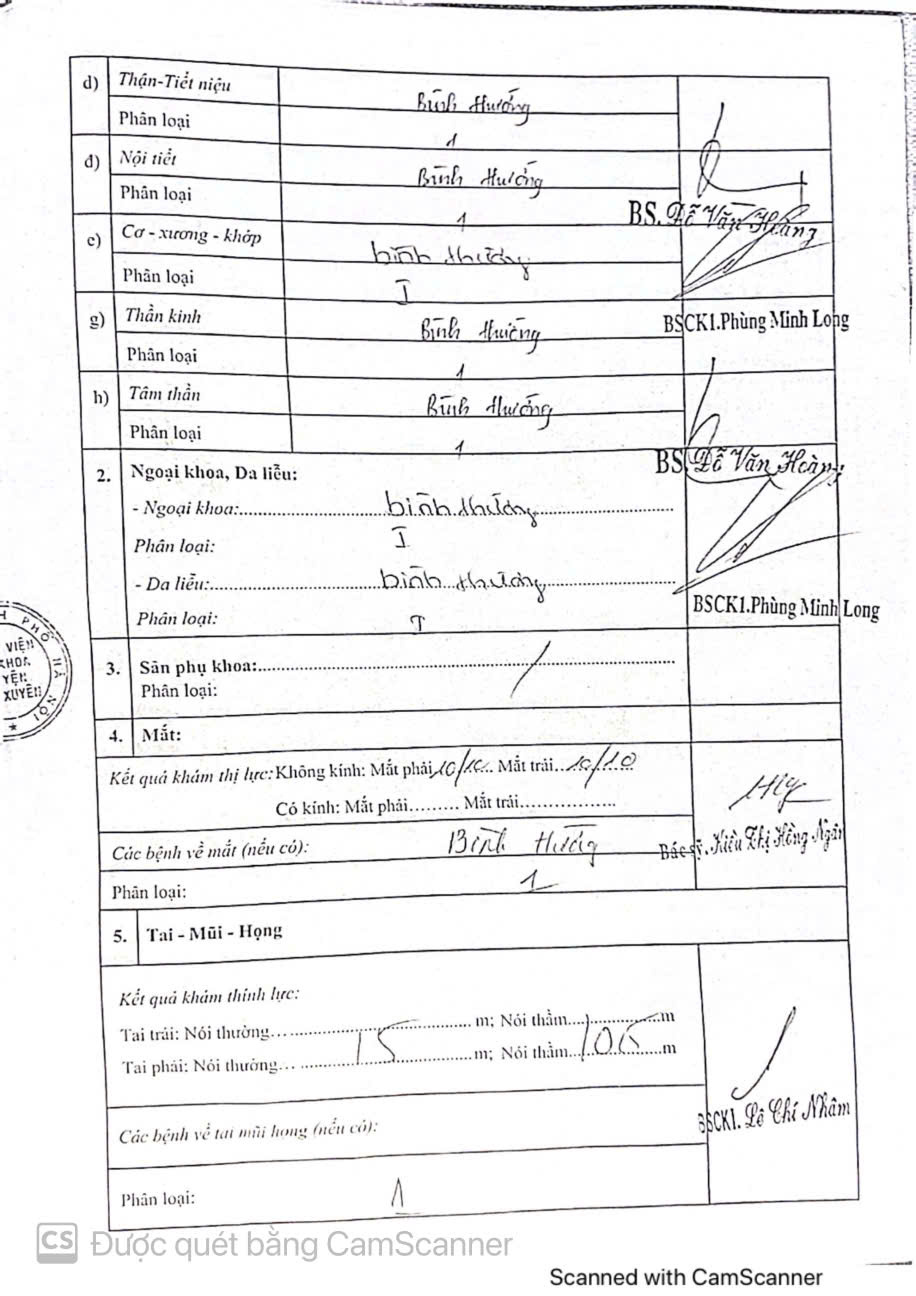 d) Thận-Tiết niệu Bình thường
Phân loại 1
đ) Nội tiết Bình thường
Phân loại 1
BS. Đỗ Văn Hoàng
e) Cơ - xương - khớp bình thường
Phân loại I
g) Thần kinh Bình thường
BSCK1.Phùng Minh Long
Phân loại 1
h) Tâm thần Bình thường
Phân loại 1
BS. Đỗ Văn Hoàng
2. Ngoại khoa, Da liễu:
- Ngoại khoa: bình thường
Phân loại: I
- Da liễu: bình thường
Phân loại: I
BSCK1.Phùng Minh Long
3. Sản phụ khoa: /
Phân loại:
4. Mắt:
Kết quả khám thị lực: Không kính: Mắt phải 10/10 Mắt trái 10/10
Có kính: Mắt phải......... Mắt trái.................
Các bệnh về mắt (nếu có): Bình thường
Bác sỹ. Kiều Thị Hồng Ngân
Phân loại: 1
5. Tai - Mũi - Họng
Kết quả khám thính lực:
Tai trái: Nói thường... m; Nói thầm... m
Tai phải: Nói thường... 15 m; Nói thầm... m
Các bệnh về tai mũi họng (nếu có):
BSCK1. Lê Chí Nhâm
Phân loại: 1
PHỐ HÀ NỘI
VIỆN
KHOA
YÊN
XUYÊN
CS Được quét bằng CamScanner
Scanned with CamScanner